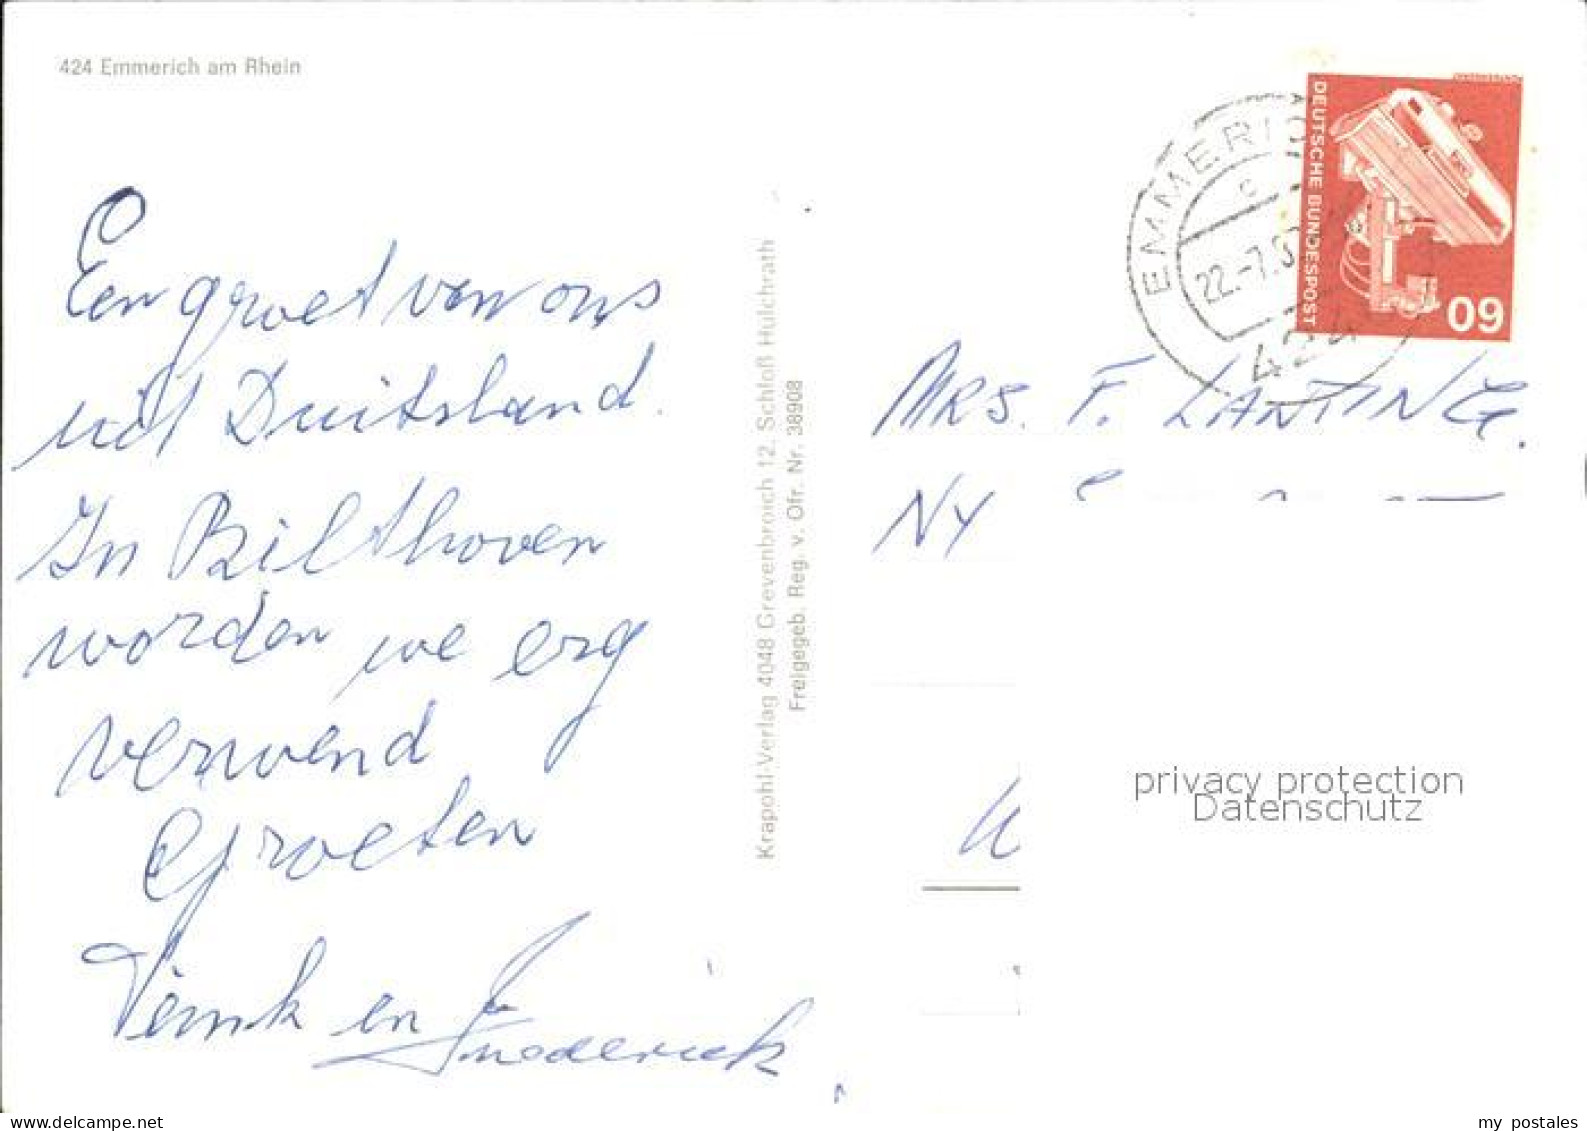 424 Emmerich am Rhein
Een groet van ons
uit Duitsland.
In Bilthoven
worden we erg
verwend
Groeten
en Frederick
Krapohl-Verlag 4048 Grevenbroich 12, Schloß Hülchrath
Freigegeb. Reg. v. Dfr. Nr. 38908
EMMERIC
c
22.-7.8
424
DEUTSCHE BUNDESPOST
60
MRS. F. LANTING.
NY
privacy protection
Datenschutz
delcampe.net
my postales